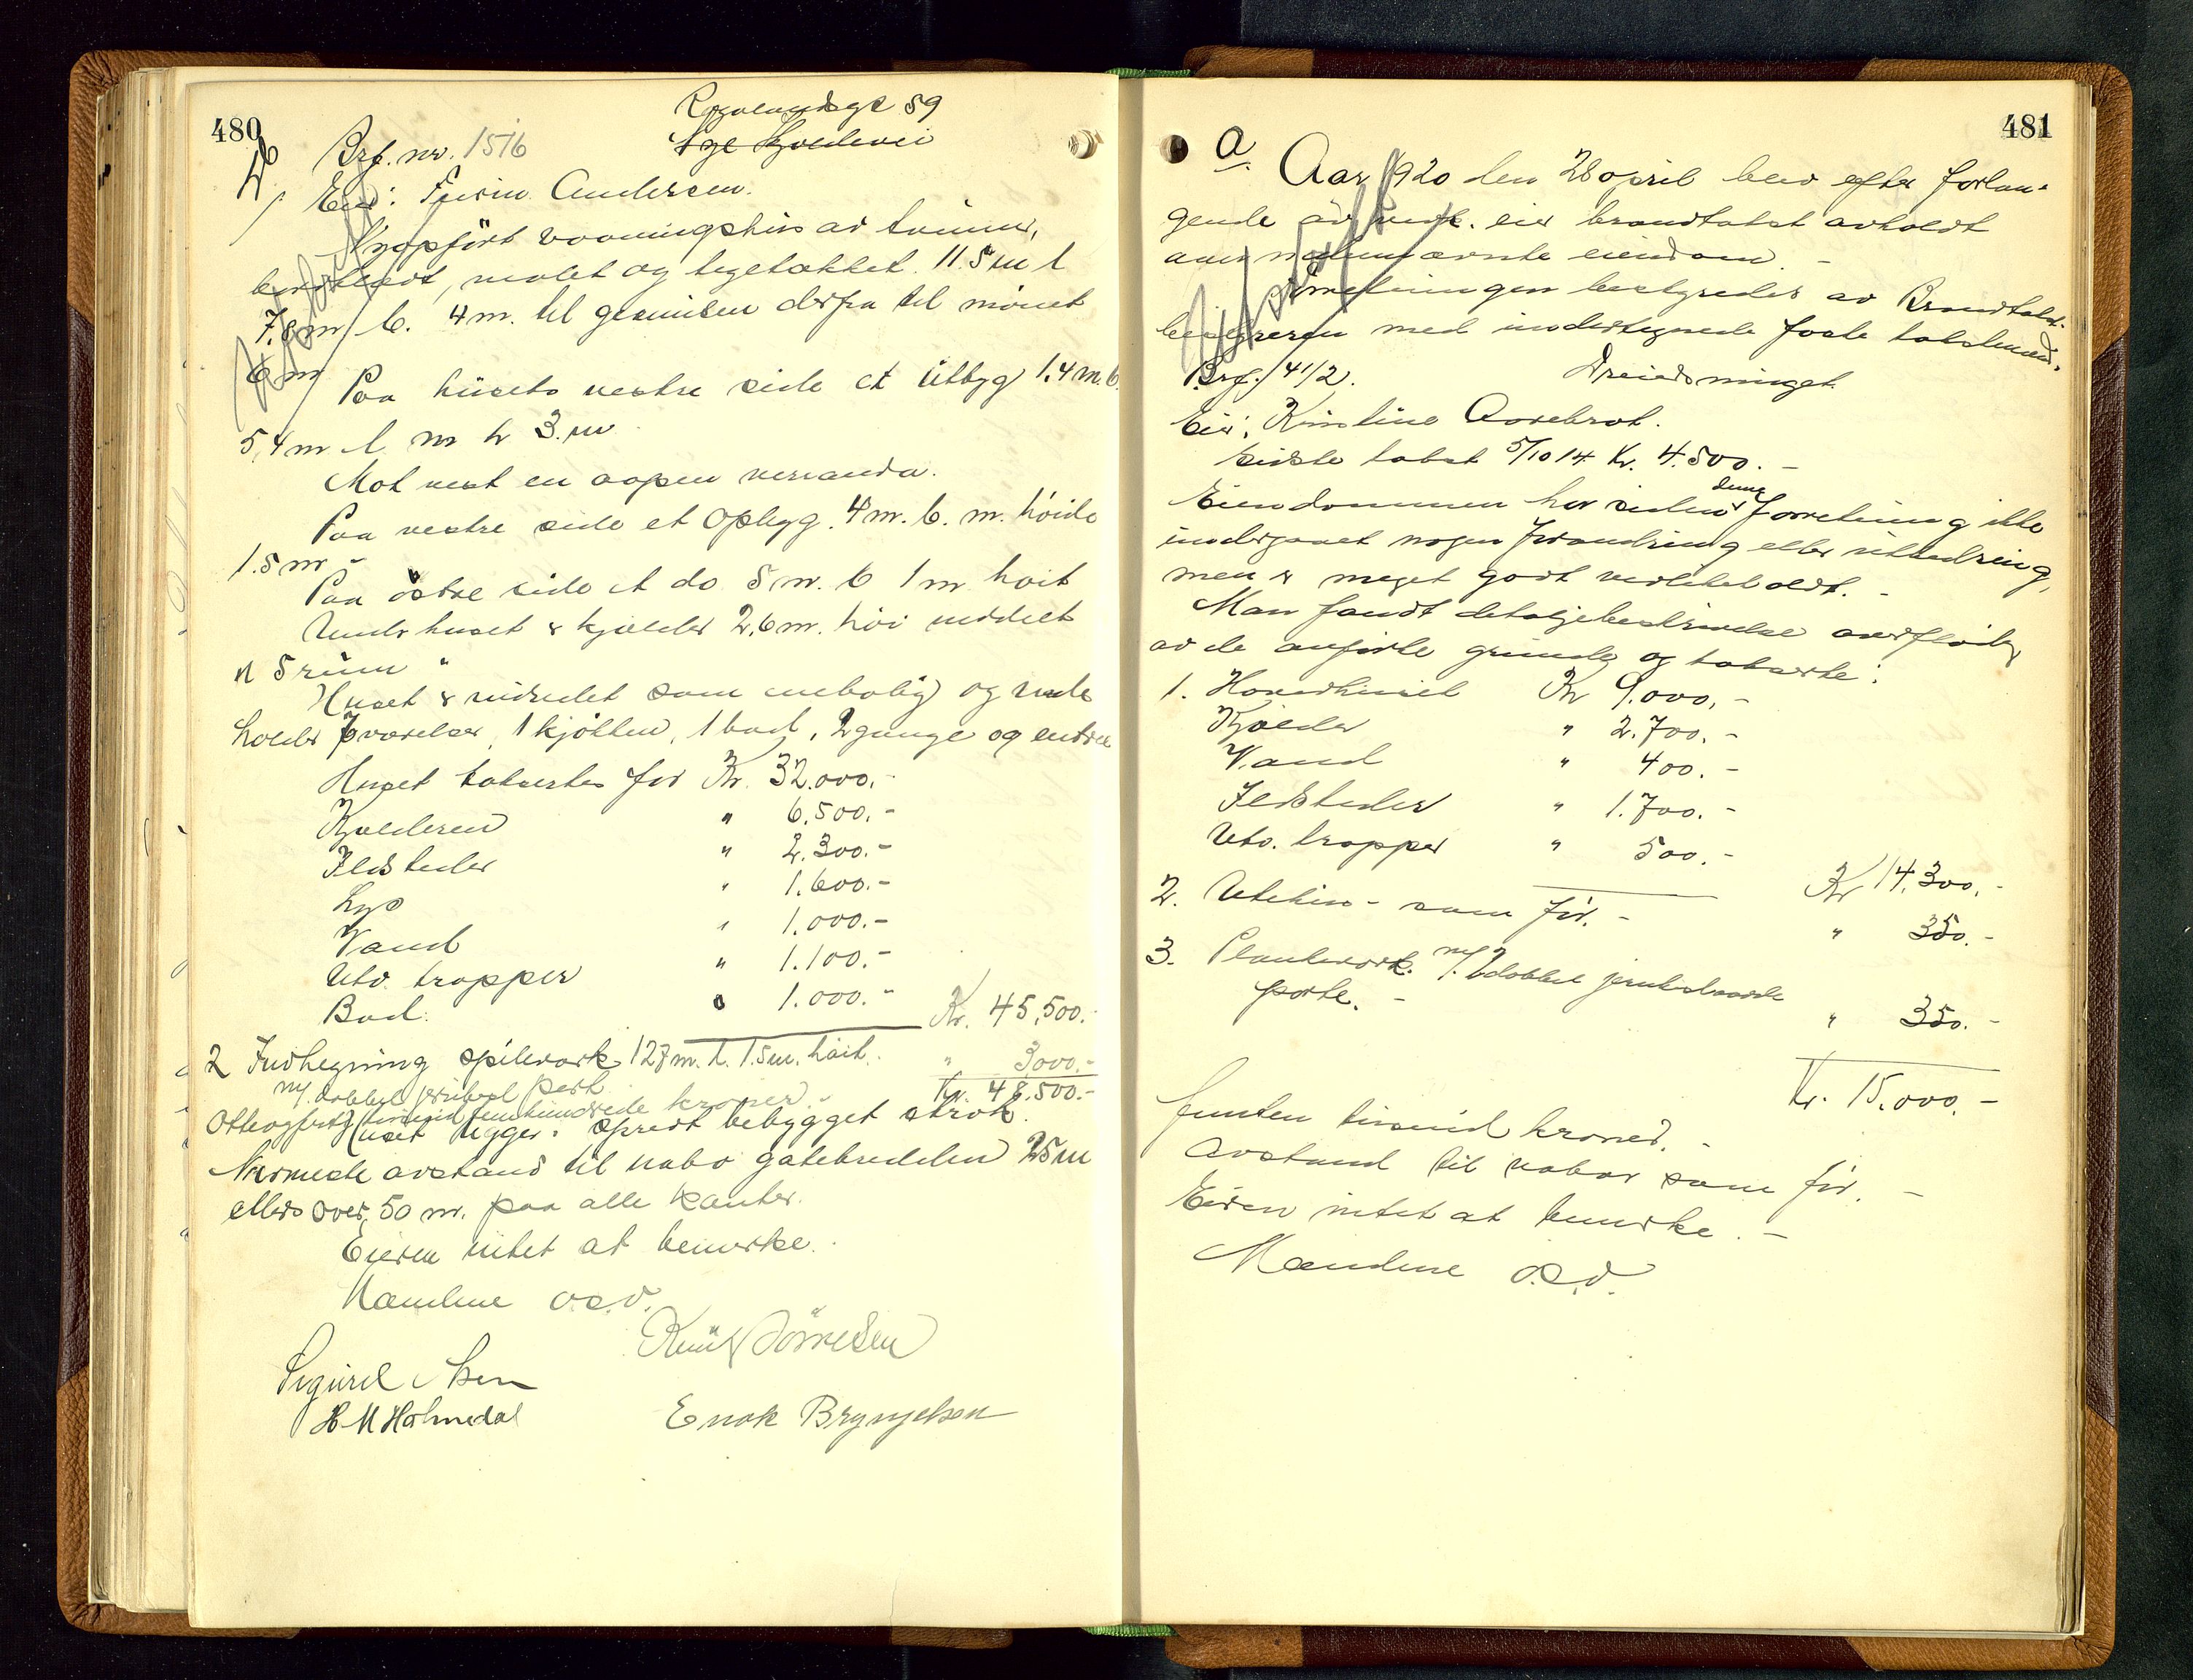 480
Brf. nr. 1516
Rogalandsgt 59
Eier: Andersen.
Nyopført vaaningshus av tømmer,
bordklædt, malet og tegltækket. 11.5m l
7.8m b. 4m. til gesimsen derfra til mønet
6m
Paa husets vestre side et utbyg 1.4m. b.
5,4m l. m h 3.m
Mot vest en aapen verranda.
Paa vestre side et opbyg. 4m. b. m. høide
1.5m -
Paa østre side et do 5m. b 1m høit
Under huset er kjælder 2,6m. høi inddelt
i 5 rum
Huset er indredet som enebolig og inde
holder 7 værelser, 1 kjøkken, 1 bad, 2 gange og entree
Huset takseres for Kr. 32.000.-
Kjælderen " 6.500.-
Ildsteder " 2.300.-
Lys " 1.600.-
Vand " 1.000.-
Utv. trapper " 1.100.-
Bad. " 1.000.- Kr. 45,500.-
2 Indhegning spileværk 127m. l. 1.5m. høit. " 3,000.-
m/. dobbel port Kr. 48.500.-
Otteogførti tusind femhundrede kroner.-
Huset ligger i spredt bebygget strøk.
Nærmeste avstand til nabo gatebredden 25m
ellers over 50 m. paa alle kanter.
Eieren intet at bemerke.
Mændene o.s.v.
Knut Tönnesen
Sigurd
H M Holmedal
Enok Bryngelsen
481
a.
Aar 1920 den 28 april blev efter forlan-
gende av vedk. eier brandtakst avholdt
over nedennævnte eiendom. -
Forretningen bestyredes av Brandtakst-
bestyreren med undertegnede faste takstmænd.
Brf. 41/2. Dreiedsminget
Eier: Kristine Aarebrot.
Sidste takst 5/10 14 Kr. 4.500.-
Eiendommen har siden denne forretning ikke
undergaaet nogen forandring eller utbedring,
men er meget godt vedlikeholdt. -
Man fandt detaljebeskrivelse overflødig
av de anførte grunde og takserte:
1. Hovedhuset Kr 9.000,-
Kjælder " 2.700.-
Vand " 400.-
Ildsteder " 1.700.-
Utv. trapper " 500.-
Kr 14.300.-
2. Utehus - som før. - " 350.-
3. Plankeverk. m/. 1 dobbel jernbeslaaede
porte. - " 350.-
Kr. 15.000.-
Femten tusind kroner. -
Avstand til nabor som før. -
Eieren intet at bemerke. -
Mændene o.s.v.